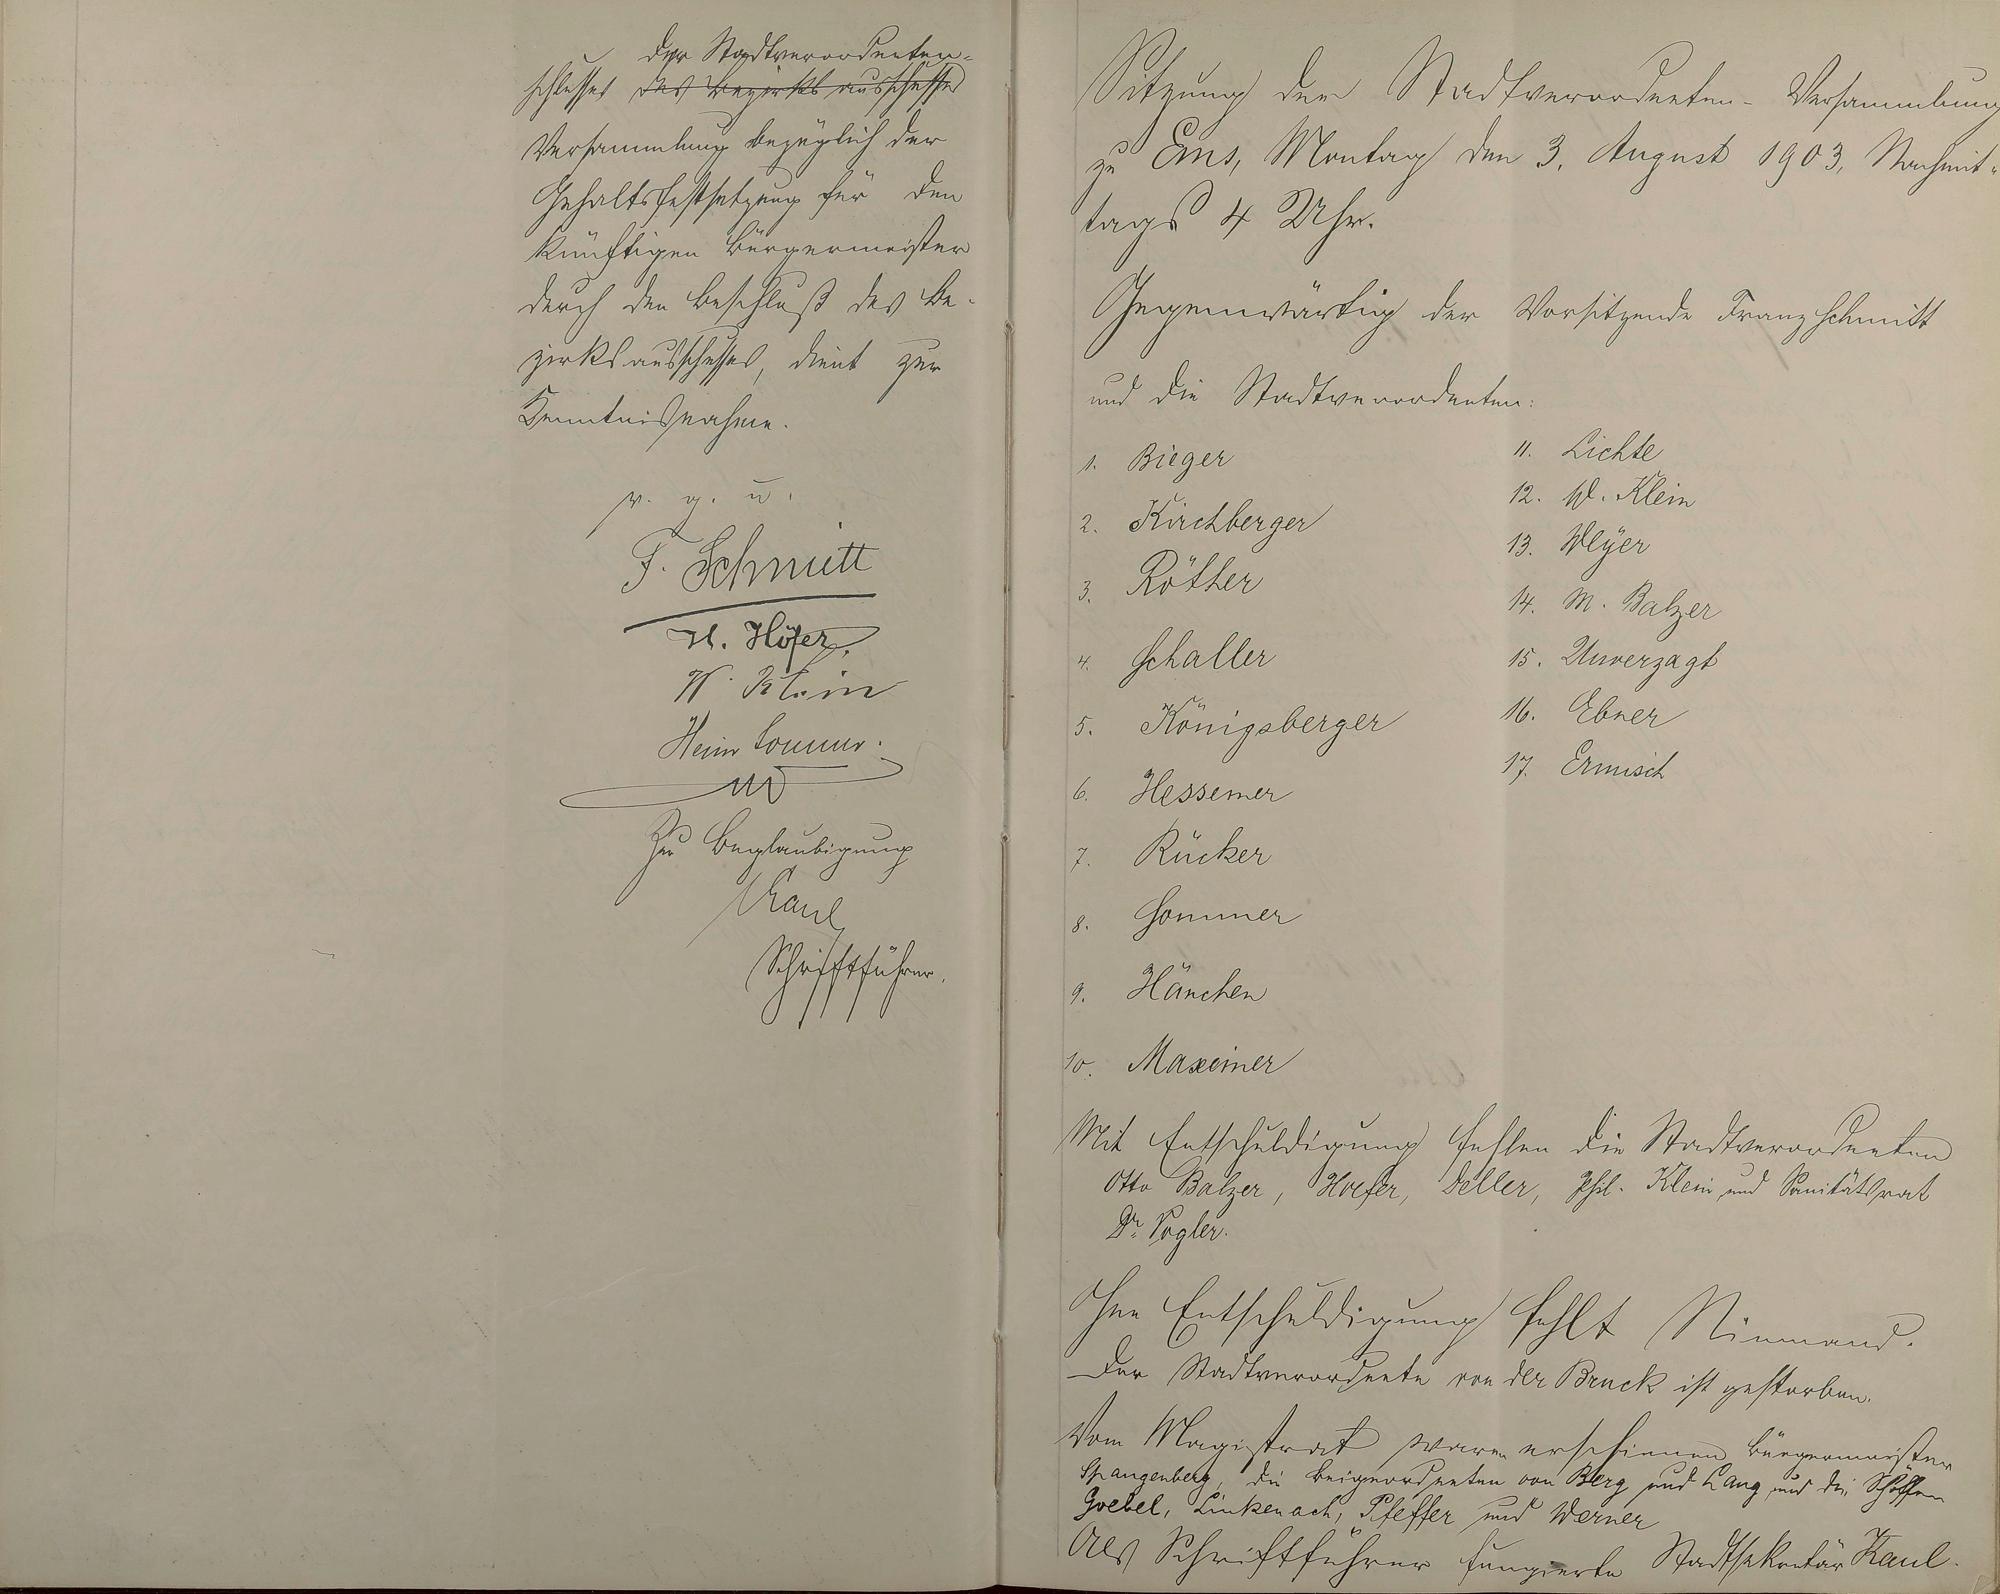 der Stadtverordneten-
schlusses des Bezirksausschusses
Versammlung bezüglich der
Gehaltsfestsetzung für den
künftigen Bürgermeister
durch den Beschluß des Be-
zirksausschusses, dient zur
Kenntnisnahme.
v. g. u.
F. Schmitt
H. Höfer.
W. Klein
Heinr Sommer.
Zur Beglaubigung
Kaul
Schriftführer.
Sitzung der Stadtverordneten-Versammlung
zu Ems, Montag den 3. August 1903, Nachmit-
tags 4 Uhr.
Gegenwärtig der Vorsitzende Franz Schmitt
und die Stadtverordneten:
1. Bieger
2. Kirchberger
3. Röther
4. Schaller
5. Königsberger
6. Hessemer
7. Rücker
8. Sommer
9. Hänchen
10. Maxeiner
11. Lichte
12. W. Klein
13. Weÿer
14. M. Balzer
15. Unverzagt
16. Ebner
17. Ermisch
Mit Entschuldigung fehlen die Stadtverordneten
Otto Balzer, Hoefer, Deller, Phil. Klein und Sanitätsrat
Dr. Vogler.
Ohne Entschuldigung fehlt Niemand.
Der Stadtverordnete von der Bruck ist gestorben.
Vom Magistrat waren erschienen Bürgermeister
Spangenberg, die Beigeordneten von Berg und Lang und die Schöffen
Goebel, Linkenach, Pfeffer und Werner
Als Schriftführer fungierte Stadtsekretär Kaul.